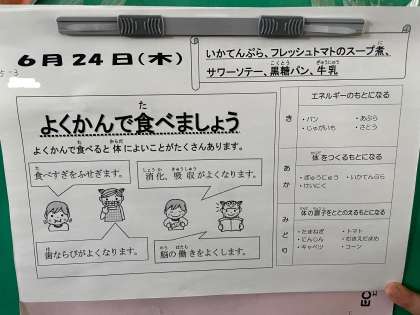 6月24日(木)
いかてんぷら、フレッシュトマトのスープ煮、
サワーソテー、黒糖パン、牛乳
よくかんで食べましょう
よくかんで食べると体によいことがたくさんあります。
食べすぎをふせぎます。
消化、吸収がよくなります。
歯ならびがよくなります。
脳の働きをよくします。
エネルギーのもとになる
き
・パン
・あぶら
・じゃがいも
・さとう
体をつくるもとになる
あか
・ぎゅうにゅう
・いかてんぷら
・けいにく
体の調子をととのえるもとになる
みどり
・たまねぎ
・トマト
・にんじん
・むきえだまめ
・キャベツ
・コーン